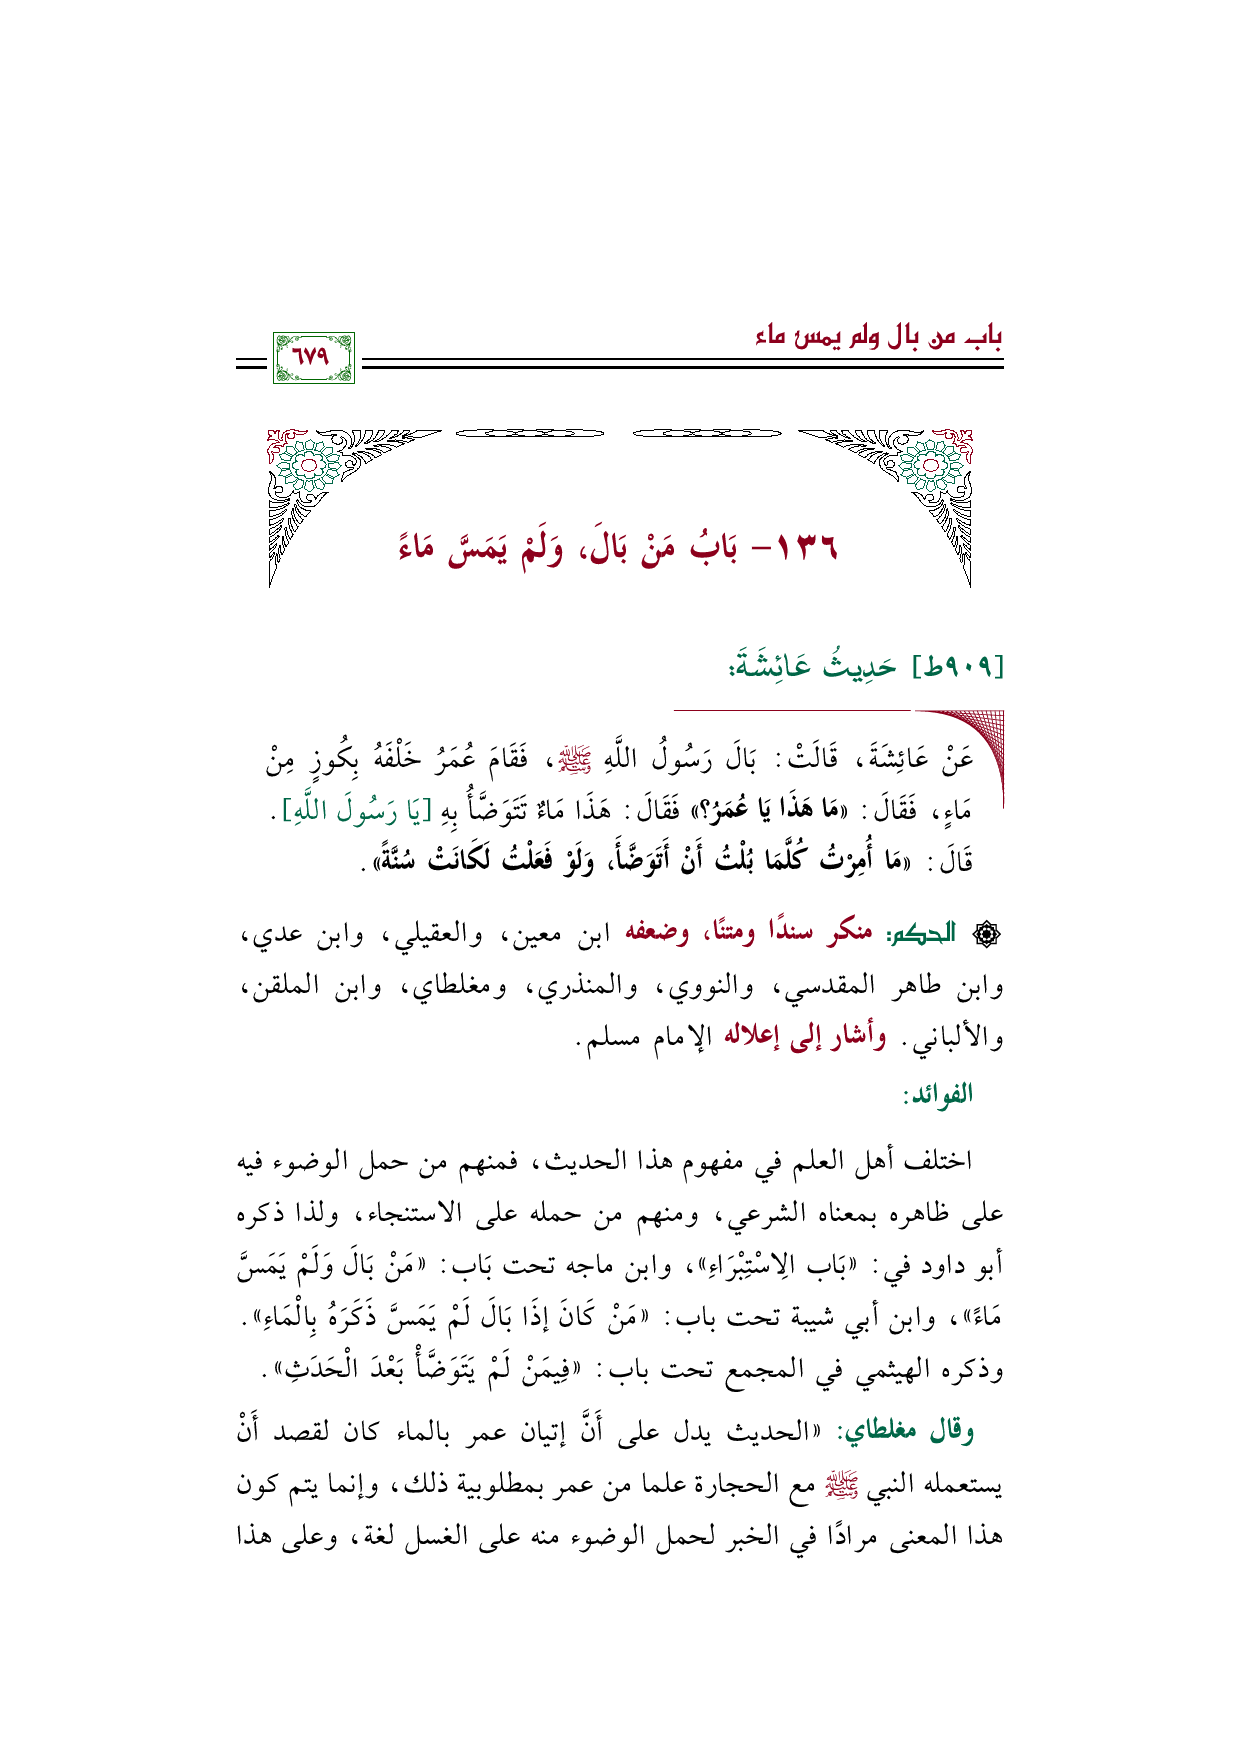 باب من بال ولم يمس ماء
٦٧٩
١٣٦- بَابُ مَنْ بَالَ، وَلَمْ يَمَسَّ مَاءً
[٩٠٩ط] حَدِيثُ عَائِشَةَ:
عَنْ عَائِشَةَ، قَالَتْ: بَالَ رَسُولُ اللَّهِ ﷺ، فَقَامَ عُمَرُ خَلْفَهُ بِكُوزٍ مِنْ
مَاءٍ، فَقَالَ: «مَا هَذَا يَا عُمَرُ؟» فَقَالَ: هَذَا مَاءٌ تَتَوَضَّأُ بِهِ [يَا رَسُولَ اللَّهِ].
قَالَ: «مَا أُمِرْتُ كُلَّمَا بُلْتُ أَنْ أَتَوَضَّأَ، وَلَوْ فَعَلْتُ لَكَانَتْ سُنَّةً».
الحكم: منكر سندًا ومتنًا، وضعفه ابن معين، والعقيلي، وابن عدي،
وابن طاهر المقدسي، والنووي، والمنذري، ومغلطاي، وابن الملقن،
والألباني. وأشار إلى إعلاله الإمام مسلم.
الفوائد:
اختلف أهل العلم في مفهوم هذا الحديث، فمنهم من حمل الوضوء فيه
على ظاهره بمعناه الشرعي، ومنهم من حمله على الاستنجاء، ولذا ذكره
أبو داود في: «بَاب الِاسْتِبْرَاءِ»، وابن ماجه تحت بَاب: «مَنْ بَالَ وَلَمْ يَمَسَّ
مَاءً»، وابن أبي شيبة تحت باب: «مَنْ كَانَ إذَا بَالَ لَمْ يَمَسَّ ذَكَرَهُ بِالْمَاءِ».
وذكره الهيثمي في المجمع تحت باب: «فِيمَنْ لَمْ يَتَوَضَّأْ بَعْدَ الْحَدَثِ».
وقال مغلطاي: «الحديث يدل على أَنَّ إتيان عمر بالماء كان لقصد أَنْ
يستعمله النبي ﷺ مع الحجارة علما من عمر بمطلوبية ذلك، وإنما يتم كون
هذا المعنى مرادًا في الخبر لحمل الوضوء منه على الغسل لغة، وعلى هذا